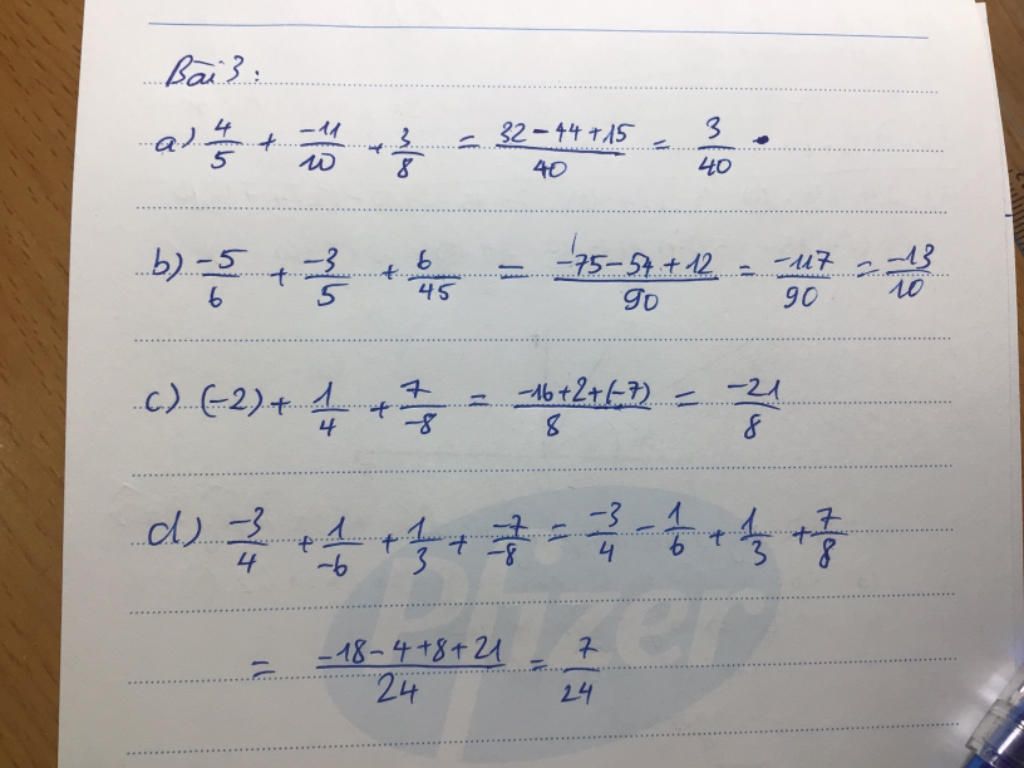 Bài 3:
a) 4/5 + -11/10 + 3/8 = 32-44+15/40 = 3/40 .
b) -5/6 + -3/5 + 6/45 = -75-54+12/90 = -117/90 = -13/10
c) (-2) + 1/4 + 7/-8 = -16+2+(-7)/8 = -21/8
d) -3/4 + 1/-6 + 1/3 + -7/-8 = -3/4 - 1/6 + 1/3 + 7/8
= -18-4+8+21/24 = 7/24
Pfizer